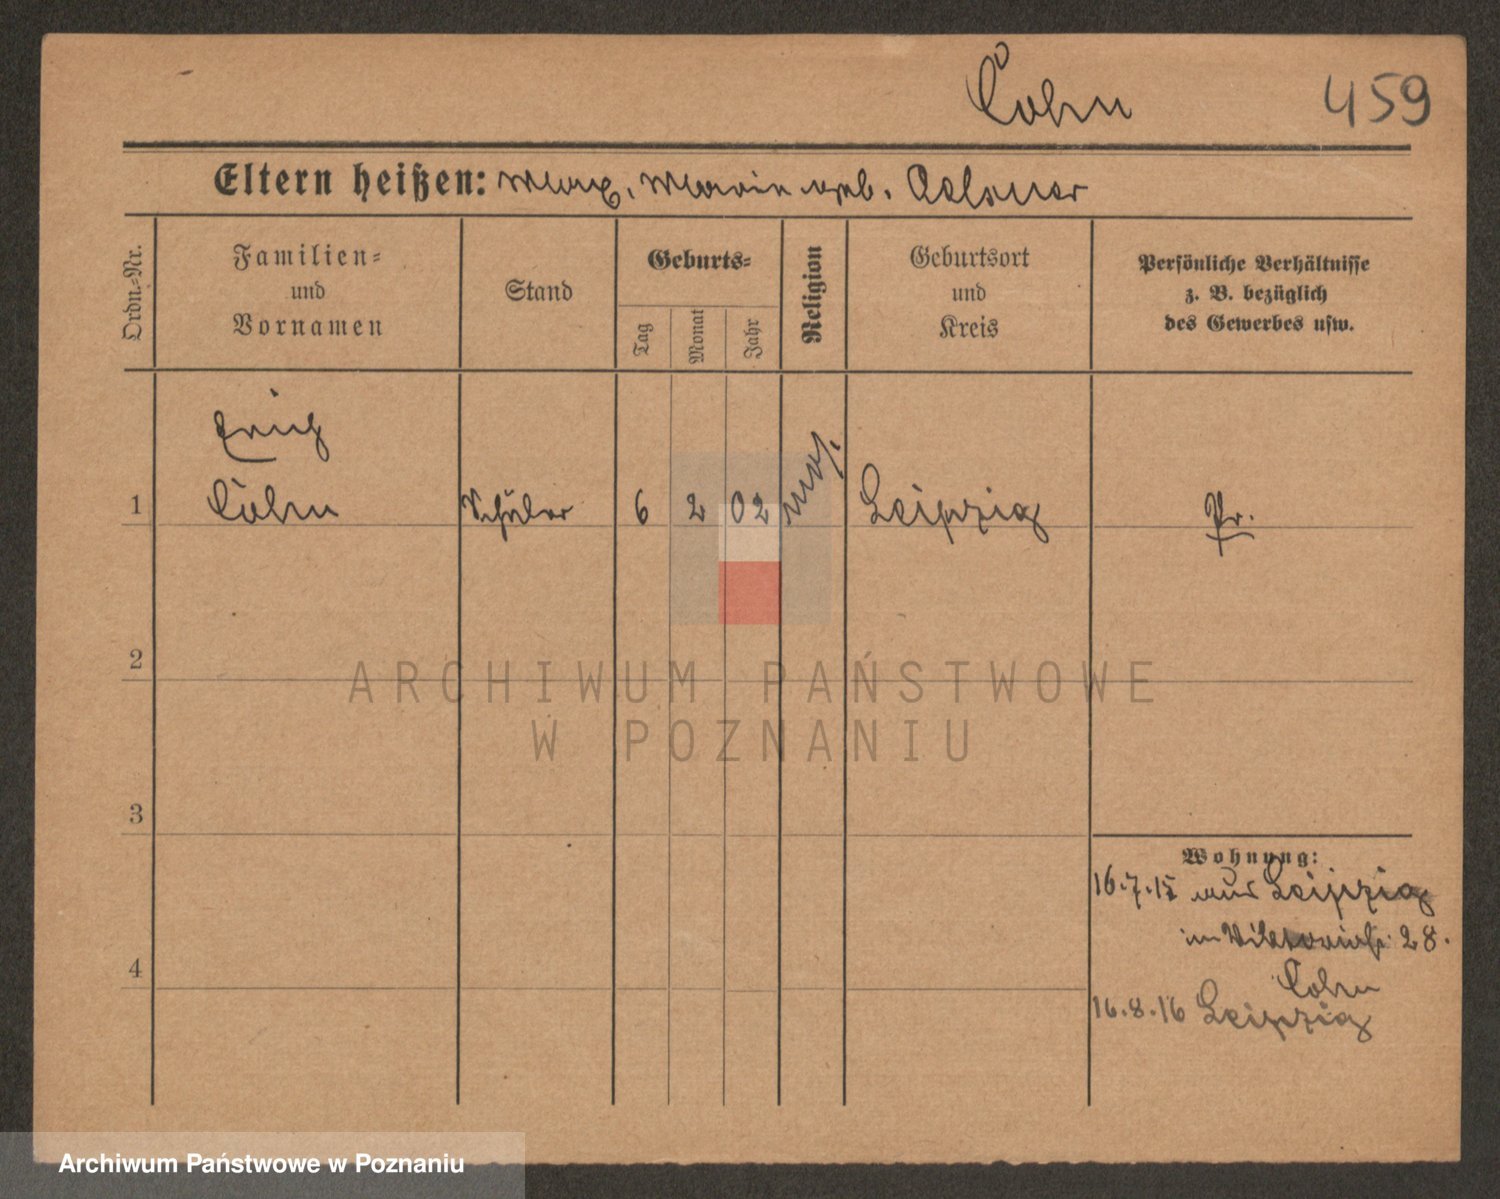 Cohn 459
Eltern heißen: Max, Marie geb.
Ordn.-Nr.
Familien-
und
Vornamen
Stand
Geburts-
Tag
Monat
Jahr
Religion
Geburtsort
und
Kreis
Persönliche Verhältnisse
z. B. bezüglich
des Gewerbes usw.
Erich
1 Cohn Schüler 6 2 02 mos. Leipzig Pr.
2
ARCHIWUM PAŃSTWOWE
W POZNANIU
3
Wohnung:
16.7.15 aus Leipzig
in Viktoriastr. 28.
4
Cohn
16.8.16 Leipzig
Archiwum Państwowe w Poznaniu